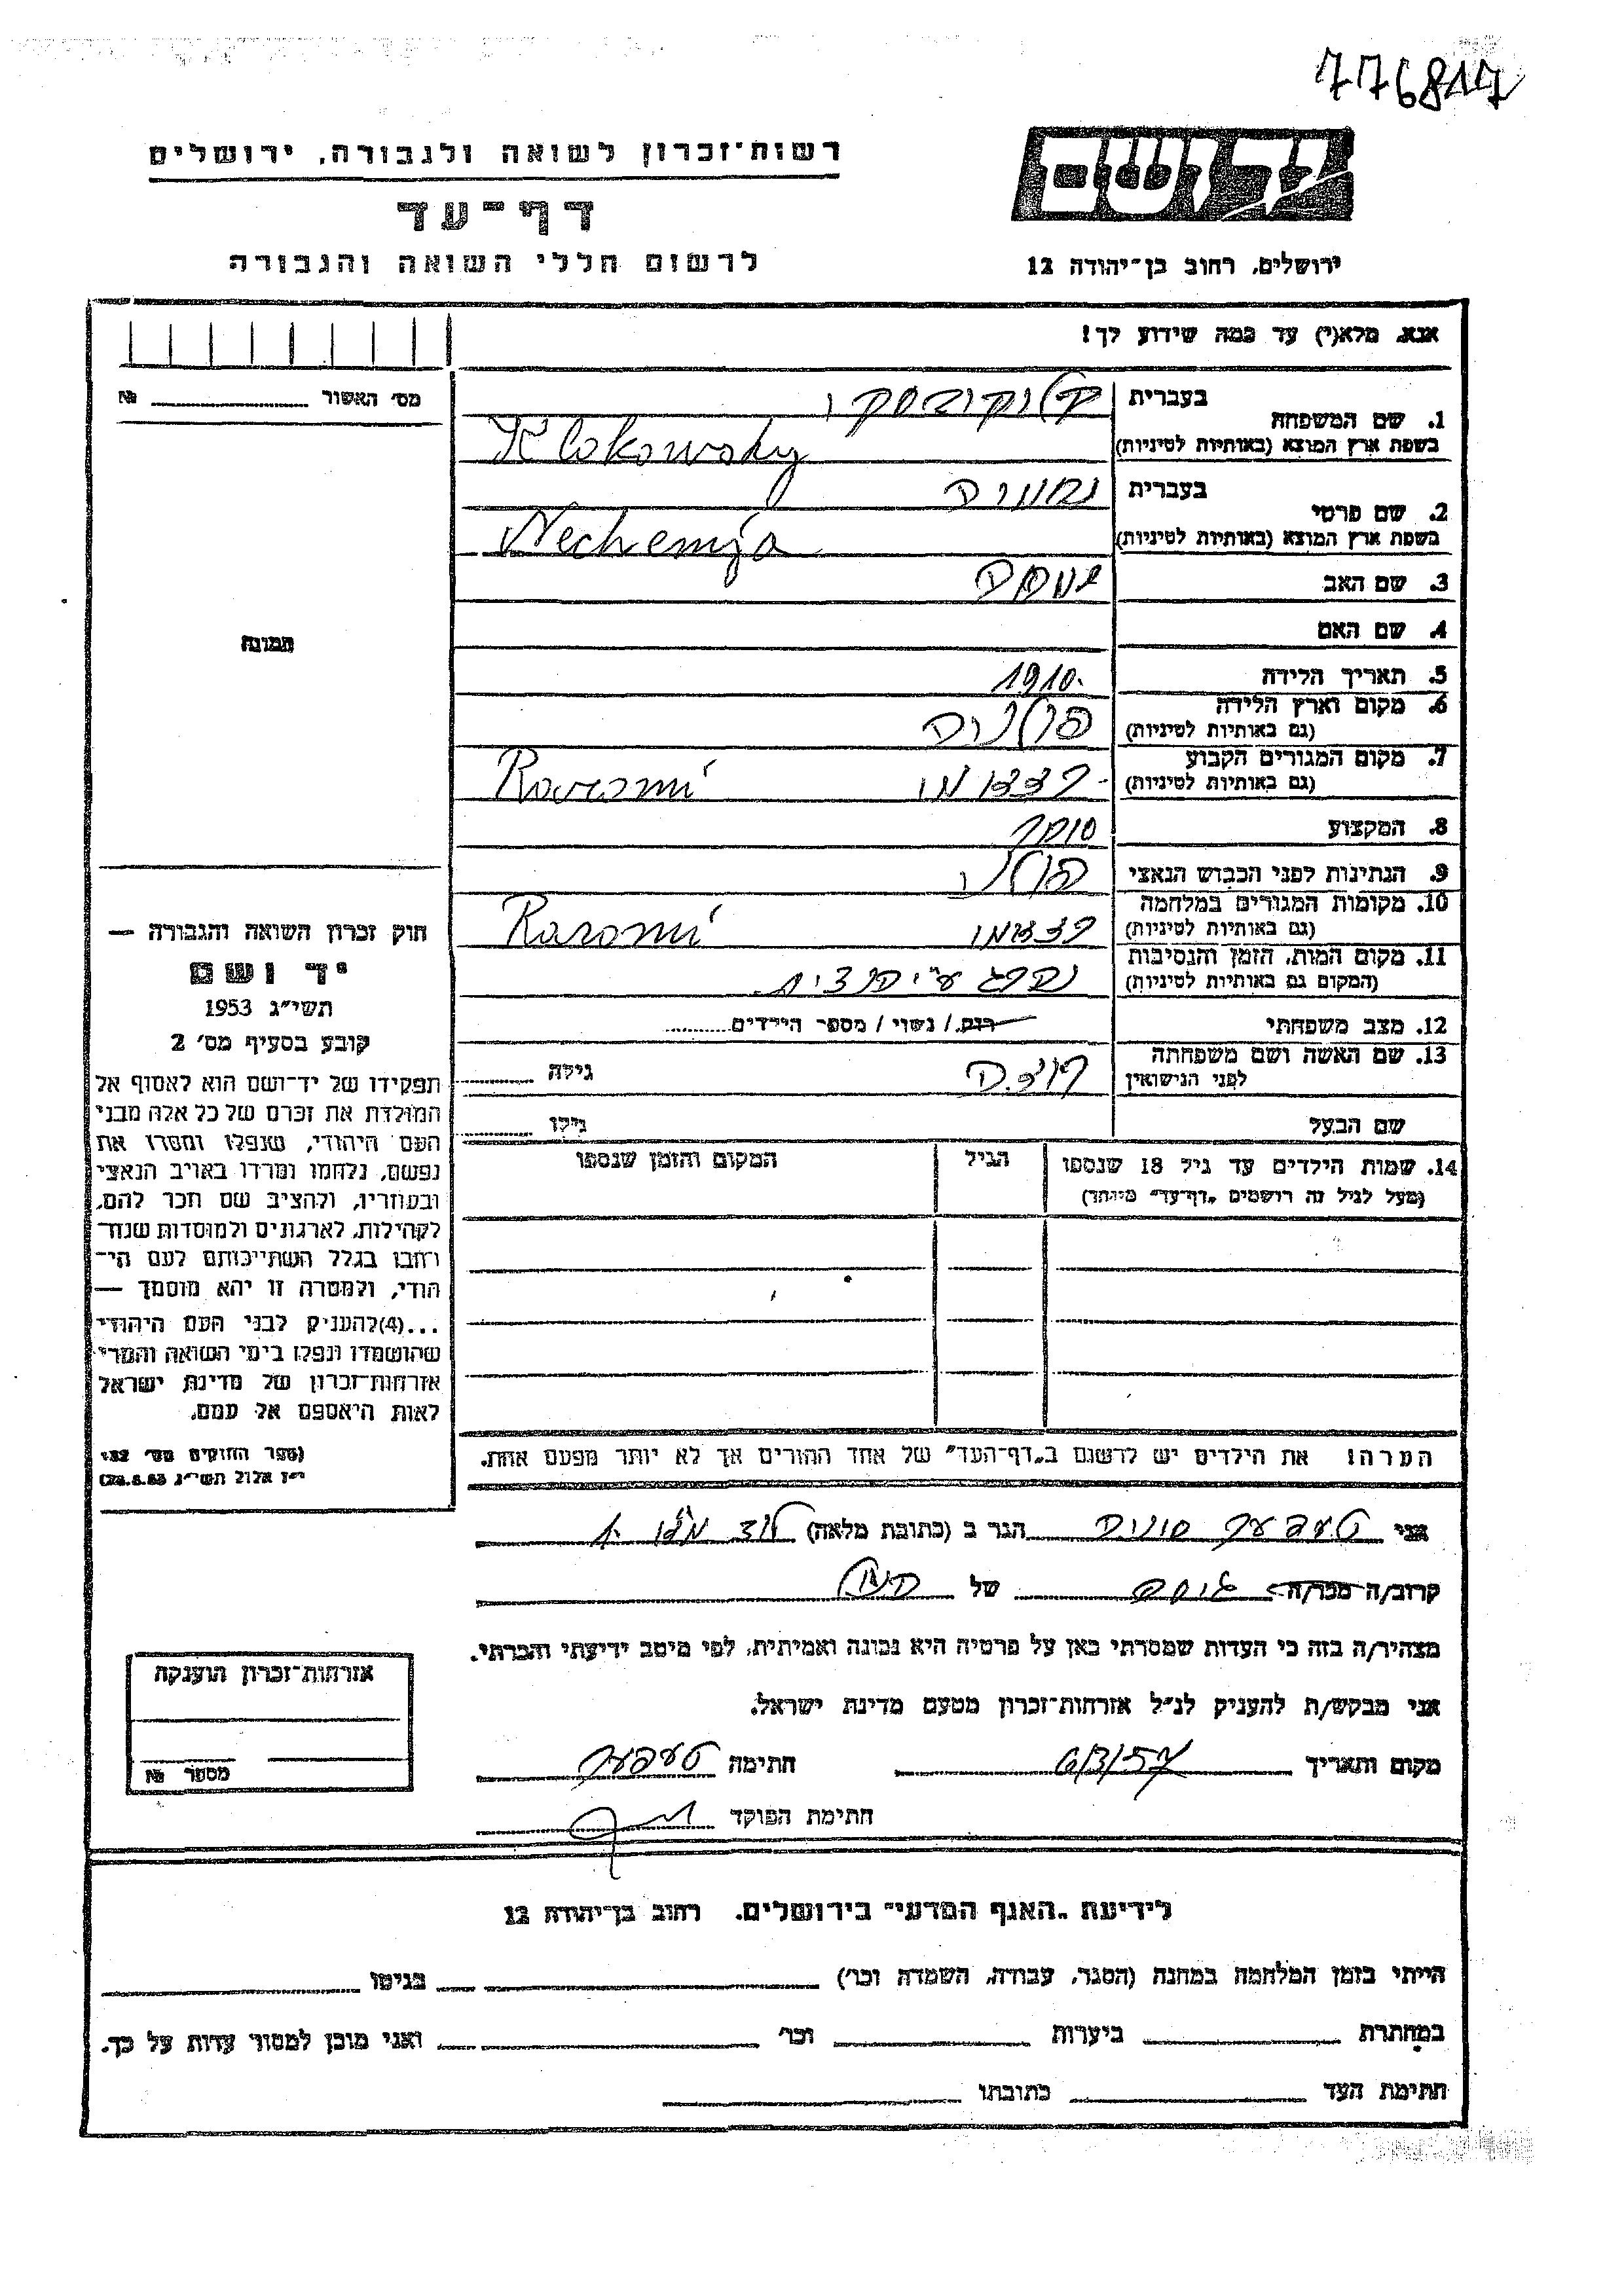 776817
רשות־זכרון לשואה ולגבורה, ירושלים
יד ושם
דף־עד
לרשום חללי השואה והגבורה
ירושלים, רחוב בן־יהודה 12
אנא, מלא(י) עד כמה שידוע לך!
מס׳ האשור № 
1. שם המשפחה
בעברית קלוקובסקי
בשפת ארץ המוצא (באותיות לטיניות) Klokowsky
2. שם פרטי
בעברית נחמיה
בשפת ארץ המוצא (באותיות לטיניות) Nechemja
3. שם האב
4. שם האם
תמונה
5. תאריך הלידה 1910
6. מקום וארץ הלידה
(גם באותיות לטיניות) פולניה
7. מקום המגורים הקבוע
(גם באותיות לטיניות)
8. המקצוע סוחר
9. הנתינות לפני הכבוש הנאצי פולני
10. מקומות המגורים במלחמה
(גם באותיות לטיניות)
11. מקום המות, הזמן והנסיבות
(המקום גם באותיות לטיניות) נהרג ע״י
12. מצב משפחתי רווק / נשוי / מספר הילדים
13. שם האשה ושם משפחתה
לפני הנישואין גילה
שם הבעל גילו
14. שמות הילדים עד גיל 18 שנספו הגיל המקום והזמן שנספו
(מעל לגיל זה רושמים „דף־עד״ מיוחד)
הערה: את הילדים יש לרשום ב„דף־העד״ של אחד ההורים אך לא יותר מפעם אחת.
חוק זכרון השואה והגבורה —
יד ושם
תשי״ג 1953
קובע בסעיף מס׳ 2
תפקידו של יד־ושם הוא לאסוף אל
המולדת את זכרם של כל אלה מבני
העם היהודי, שנפלו ומסרו את
נפשם, נלחמו ומרדו באויב הנאצי
ובעוזריו, ולהציב שם וזכר להם,
לקהילות, לארגונים ולמוסדות שנח־
רבו בגלל השתייכותם לעם הי־
הודי, ולמטרה זו יהא מוסמך —
...(4)להעניק לבני העם היהודי
שהושמדו ונפלו בימי השואה והמרי
אזרחות־זכרון של מדינת ישראל
לאות היאספם אל עמם.
(ספר החוקים מס׳ 132
י״ז אלול תשי״ג 28.8.53)
אני הגר ב (כתובת מלאה)
קרוב/ה מכר/ה של
מצהיר/ה בזה כי העדות שמסרתי כאן על פרטיה היא נכונה ואמיתית, לפי מיטב ידיעתי והכרתי.
אני מבקש/ת להעניק לנ״ל אזרחות־זכרון מטעם מדינת ישראל.
מקום ותאריך 6/3/57 חתימה
חתימת הפוקד
אזרחות־זכרון הוענקה
מספר №
לידיעת „האגף המדעי״ בירושלים, רחוב בן־יהודה 12
הייתי בזמן המלחמה במחנה (הסגר, עבודה, השמדה וכו׳) בגיטו
במחתרת ביערות וכו׳ ואני מוכן למסור עדות על כך.
חתימת העד כתובתו